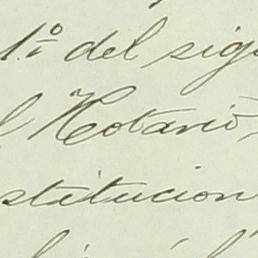 1.º del sigu
l Notario,
stitucion